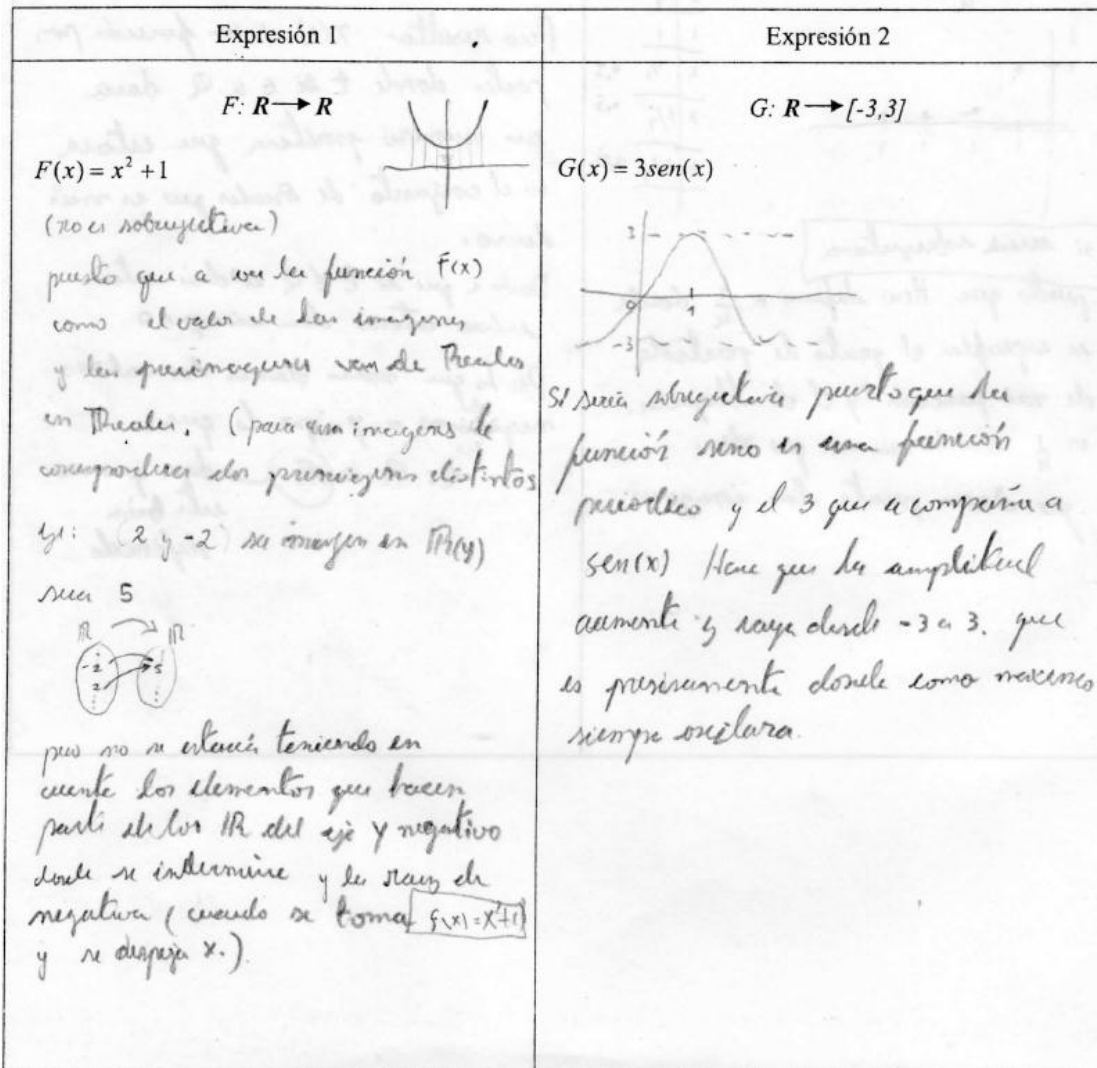 Expresión 1
F: R → R
F(x) = x² + 1
(no es sobreyectiva)
puesto que a ver la función F(x)
como el valor de las imagenes
y las preimagenes van de Reales
en Reales. (para una imagens le
dos distintos
Ej: (2 y -2 su imagen en IR(y)
sera 5
IR IR
-2 5
2
pero no se estaría teniendo en
cuenta los elementos que hacen
parte de los IR del eje Y negativo
donde se y la raiz da
negativa (cuando se toma f(x)=x²+1
y se despeja x.)
Expresión 2
G: R → [-3,3]
G(x) = 3sen(x)
3
0
1
-3
Si seria sobreyectiva puesto que la
función seno es una función
periodica y el 3 que acompaña a
sen(x) Hace que la amplitud
aumente y vaya desde -3 a 3. que
es presisamente donde como maximo
siempre oscilara.